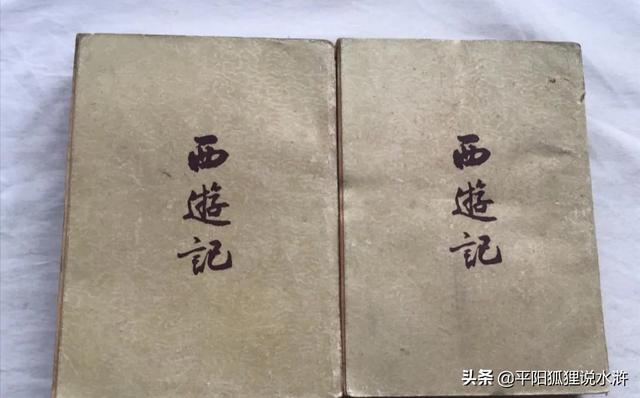 西遊記
西遊記
头条 @平阳狐狸说水浒